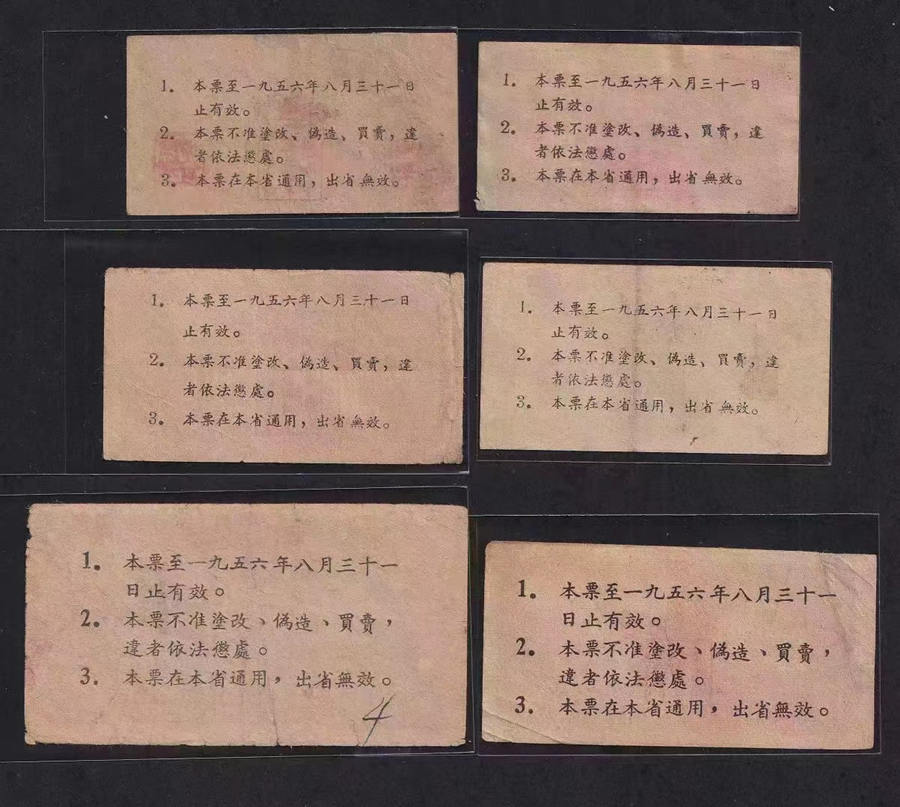 1. 本票至一九五六年八月三十一日
止有效。
2. 本票不准塗改、僞造、買賣，違
者依法懲處。
3. 本票在本省通用，出省無效。
1. 本票至一九五六年八月三十一日
止有效。
2. 本票不准塗改、僞造、買賣，違
者依法懲處。
3. 本票在本省通用，出省無效。
1. 本票至一九五六年八月三十一日
止有效。
2. 本票不准塗改、僞造、買賣，違
者依法懲處。
3. 本票在本省通用，出省無效。
1. 本票至一九五六年八月三十一日
止有效。
2. 本票不准塗改、僞造、買賣，違
者依法懲處。
3. 本票在本省通用，出省無效。
1. 本票至一九五六年八月三十一
日止有效。
2. 本票不准塗改、僞造、買賣，
違者依法懲處。
3. 本票在本省通用，出省無效。
4
1. 本票至一九五六年八月三十一
日止有效。
2. 本票不准塗改、僞造、買賣，
違者依法懲處。
3. 本票在本省通用，出省無效。